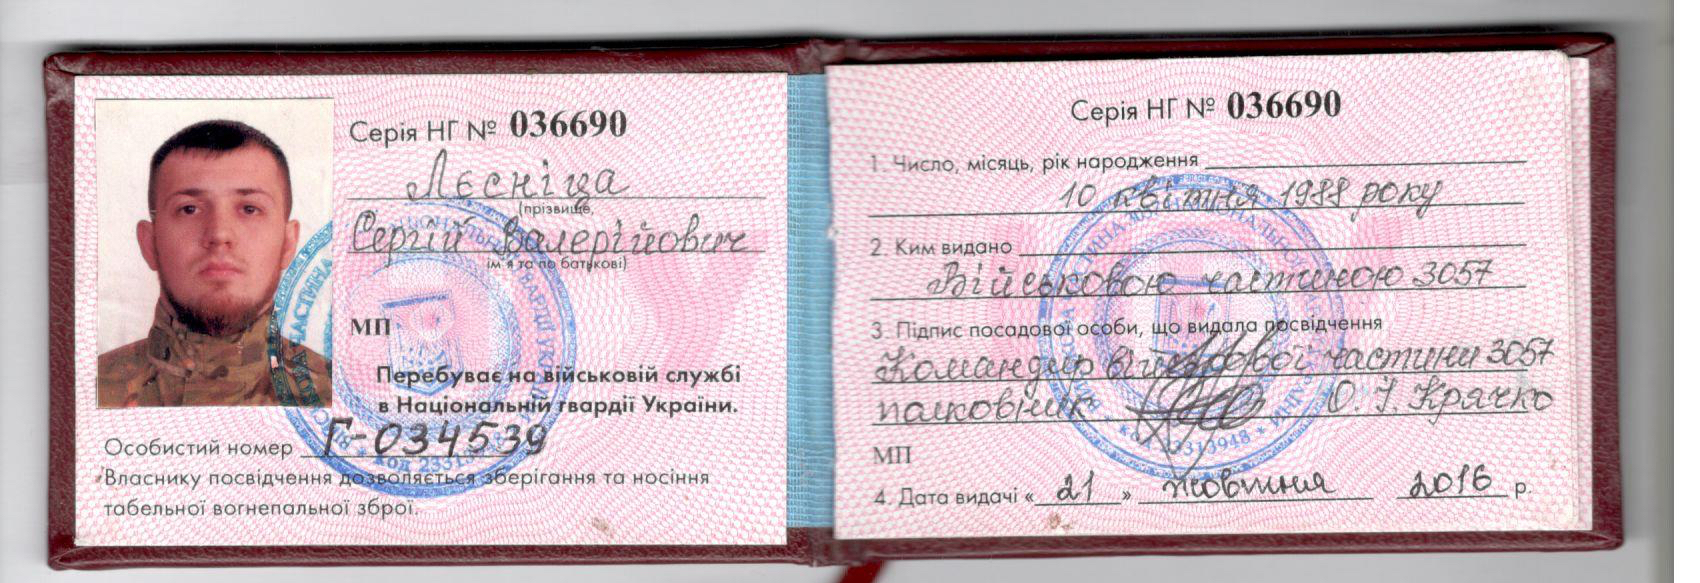 Серія НГ № 036690
Лєсніца
(прізвище,
Сергій Валерійович
ім'я та по батькові)
МП
Перебуває на військовій службі
в Національній гвардії України.
Особистий номер Г-034539
Власнику посвідчення дозволяється зберігання та носіння
табельної вогнепальної зброї.
Серія НГ № 036690
1. Число, місяць, рік народження
10 квітня 1988 року
2. Ким видано
Військовою частиною 3057
3. Підпис посадової особи, що видала посвідчення
Командир військової частини 3057
полковник О. І. Крячко
МП
4. Дата видачі « 21 » жовтня 2016 р.